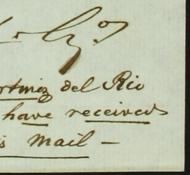 & Cy.º
rtinez del Rio
have received
is mail —